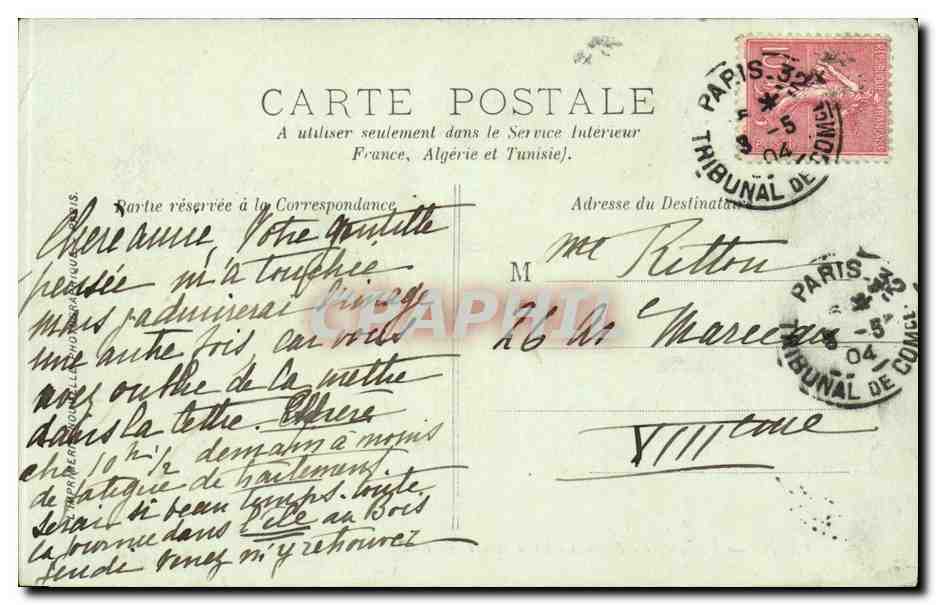 CARTE POSTALE
A utiliser seulement dans le Service Intérieur
France, Algérie et Tunisie).
Partie réservée à la Correspondance
Adresse du Destinataire
Chère amie, Votre gentille
pensée m'a touchée
mais j'admirerai l'image
une autre fois, car vous
avez oublié de la mettre
dans la lettre.
10 h 1/2 demain a moins
de fatigue de traitement.
serai si beau temps toute
la journée dans l'île au Bois
jeudi Venez m'y retrouver
M me Ritton
26 Av Marceau
VIII
10
PARIS-32
5 -5
04
TRIBUNAL DE COMCE
PARIS-32
-5
04
TRIBUNAL DE COMCE
L'IMPRIMERIE NOUVELLE PHOTOGRAPHIQUE. PARIS.
CPAPHIL